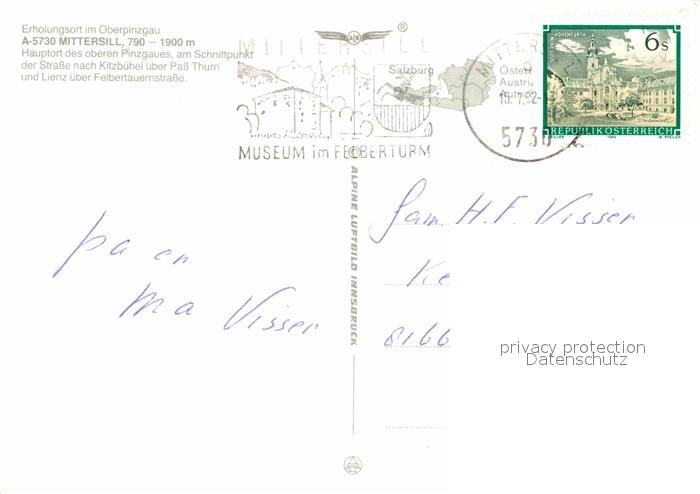 Erholungsort im Oberpinzgau
A-5730 MITTERSILL, 790 – 1900 m
Hauptort des oberen Pinzgaues, am Schnittpunkt
der Straße nach Kitzbühel über Paß Thurn
und Lienz über Felbertauernstraße.
®
MITTERSILL
Salzburg
MUSEUM im FELBERTURM
Österr
Austri
MITTERS
5730
6s
REPUBLIK ÖSTERREICH
ALPINE LUFTBILD INNSBRUCK
pa en
Ma Visser
Fam. H.F. Visser
Ke
8166
privacy protection
Datenschutz